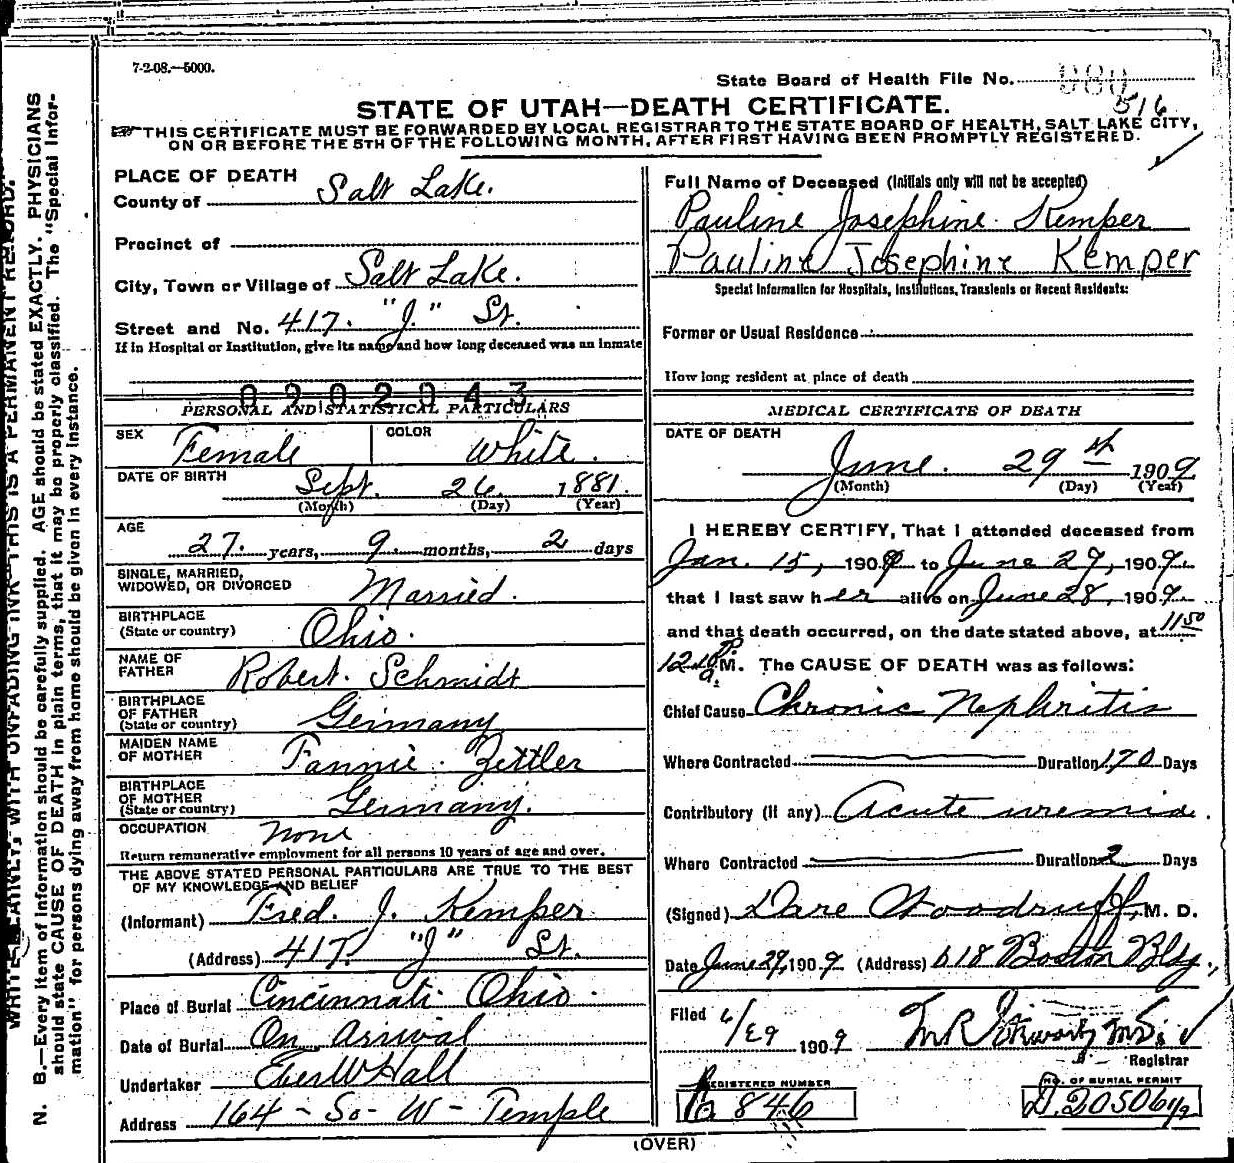 7-2-08.—5000.
State Board of Health File No. 980
516
STATE OF UTAH—DEATH CERTIFICATE.
THIS CERTIFICATE MUST BE FORWARDED BY LOCAL REGISTRAR TO THE STATE BOARD OF HEALTH, SALT LAKE CITY,
ON OR BEFORE THE 5TH OF THE FOLLOWING MONTH, AFTER FIRST HAVING BEEN PROMPTLY REGISTERED.
PLACE OF DEATH
County of Salt Lake.
Precinct of
City, Town or Village of Salt Lake.
Street and No. 417. "J." St.
If in Hospital or Institution, give its name and how long deceased was an inmate
0202043
Full Name of Deceased (Initials only will not be accepted)
Pauline Josephine Kemper
Pauline Josephine Kemper
Special Information for Hospitals, Institutions, Transients or Recent Residents:
Former or Usual Residence
How long resident at place of death
PERSONAL AND STATISTICAL PARTICULARS
SEX Female COLOR White.
DATE OF BIRTH Sept. 26. 1881.
(Month) (Day) (Year)
AGE 27. years, 9. months, 2 days
SINGLE, MARRIED,
WIDOWED, OR DIVORCED Married.
BIRTHPLACE
(State or country) Ohio.
NAME OF
FATHER Robert. Schmidt
BIRTHPLACE
OF FATHER
(State or country) Germany
MAIDEN NAME
OF MOTHER Fannie. Zettler
BIRTHPLACE
OF MOTHER
(State or country) Germany.
OCCUPATION None
Return remunerative employment for all persons 10 years of age and over.
THE ABOVE STATED PERSONAL PARTICULARS ARE TRUE TO THE BEST
OF MY KNOWLEDGE AND BELIEF
(Informant) Fred. J. Kemper
(Address) 417. "J" St.
Place of Burial Cincinnati Ohio.
Date of Burial On Arrival
Undertaker Eber W Hall
Address 164 - So - W - Temple
MEDICAL CERTIFICATE OF DEATH
DATE OF DEATH
June. 29th 1909
(Month) (Day) (Year)
I HEREBY CERTIFY, That I attended deceased from
Jan. 15, 1909 to June 29, 1909.
that I last saw her alive on June 28, 1909.
and that death occurred, on the date stated above, at 1150
M. The CAUSE OF DEATH was as follows:
Chief Cause Chronic Nephritis
Where Contracted Duration 170 Days
Contributory (if any) Acute uremia.
Where Contracted Duration 2 Days
(Signed) Dare Woodruff, M. D.
Date June 29, 1909 (Address) 618 Boston Bldg.,
Filed 6/29 1909
Registrar
REGISTERED NUMBER
846
NO. OF BURIAL PERMIT
D. 20506
(OVER)
WRITE PLAINLY, WITH UNFADING INK—THIS IS A PERMANENT RECORD.
N. B.—Every item of information should be carefully supplied. AGE should be stated EXACTLY. PHYSICIANS
should state CAUSE OF DEATH in plain terms, that it may be properly classified. The "Special Infor-
mation" for persons dying away from home should be given in every instance.